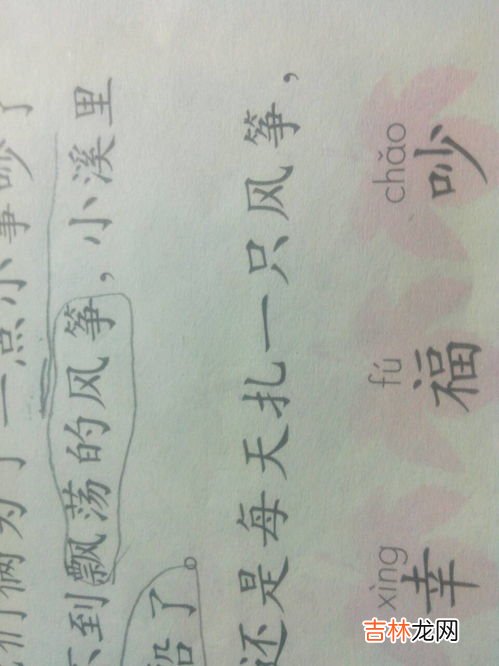 们俩为了一点小事吵了
到飘荡的风筝，小溪里
船了。
还是每天扎一只风筝，
xìng fú chǎo
幸 福 吵
吉林龙网